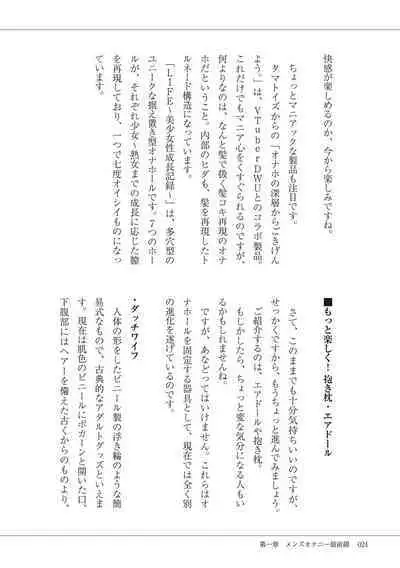 快感が楽しめるのか、今から楽しみですね。
ちょっとマニアックな製品も注目です。
タマトイズからの「オナホの深層からごきげん
よう。」は、VTuberDWUとのコラボ製品。
これだけでもマニア心をくすぐられるのですが、
何よりなのは、なんと髪で扱く髪コキ再現のオナ
ホだということ。内部のヒダも、髪を再現したト
ルネード構造になっています。
■もっと楽しく！抱き枕・エアドール
さて、このままでも十分気持ちいいのですが、
せっかくですから、もうちょっと進んでみましょう。
ご紹介するのは、エアドールや抱き枕。
もしかしたら、ちょっと変な気分になる人もい
るかもしれませんね。
ですが、あなどってはいけません。これらはオ
ナホールを固定する器具として、現在では全く別
の進化を遂げているのです。
・ダッチワイフ
人体の形をしたビニール製の浮き輪のような簡
易式なもので、古典的なアダルトグッズといえま
す。現在は肌色のビニールにポカーンと開いた口、
下腹部にはヘアーを備えた古くからのものより、
第一章　メンズオナニー最前線　024